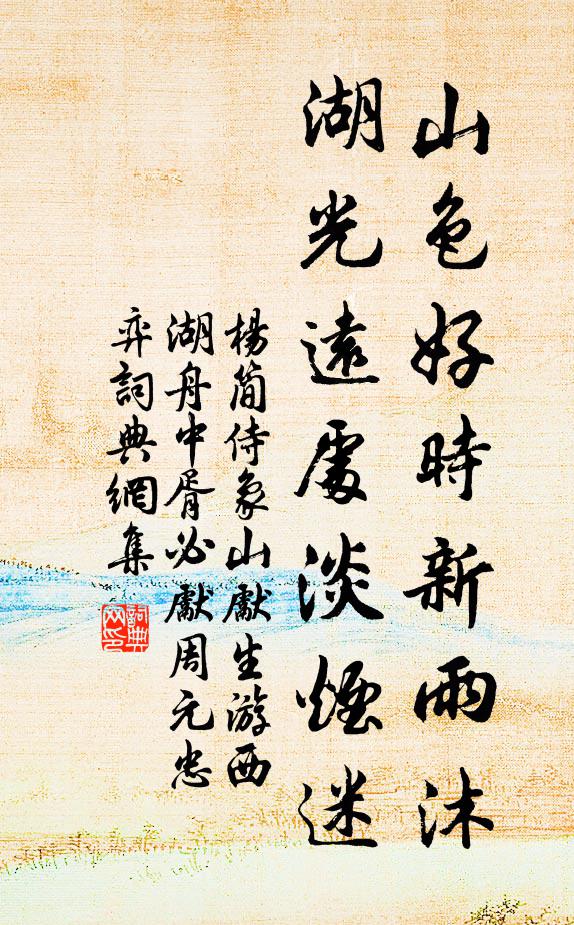 山色好時新雨沐
湖光遠處淡煙迷
楊簡侍象山獻生游西
湖舟中胥必獻周元忠
弈詞典網集
詞典
网印